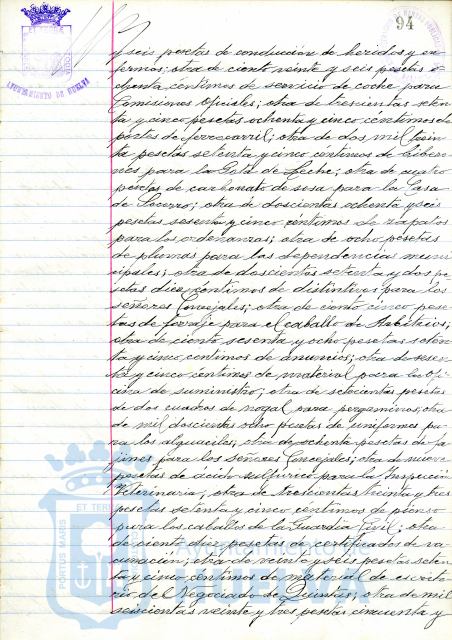 94
AYUNTAMIENTO DE HUELVA
y seis pesetas de conducción de heridos y en-
fermos; otra de ciento veinte y seis pesetas o-
chenta céntimos de servicio de coche para
Comisiones Oficiales; otra de trescientas seten-
ta y cinco pesetas ochenta y cinco céntimos de
portes de ferrocarril; otra de dos mil trein-
ta pesetas setenta y cinco céntimos de bibero-
nes para la Gota de Leche; otra de cuatro
pesetas de carbonato de sosa para la Casa
de Socorro; otra de doscientas ochenta y seis
pesetas sesenta y cinco céntimos de zapatos
para los ordenanzas; otra de ocho pesetas
de plumas para las dependencias muni-
cipales; otra de doscientas setenta y dos pe-
setas diez céntimos de distintivos para los
señores Concejales; otra de ciento cinco pese-
tas de forraje para el caballo de Arbitrios;
otra de ciento sesenta y ocho pesetas seten-
ta y cinco céntimos de anuncios; otra de sesen-
ta y cinco céntimos de material para la Ofi-
cina de suministro; otra de setecientas pesetas
de dos cuadros de nogal para pergaminos; otra
de mil doscientas ocho pesetas de uniformes pa-
ra los alguaciles; otra de ochenta pesetas de fa-
jines para los señores Concejales; otra de nueve
pesetas de ácido sulfúrico para la Inspección
Veterinaria; otra de trescientas treinta y tres
pesetas setenta y cinco céntimos de pienso
para los caballos de la Guardia Civil; otra
de ciento diez pesetas de certificados de va-
cunación; otra de veinte y seis pesetas seten-
ta y cinco céntimos de material de escrito-
rio del Negociado de Quintas; otra de mil
seiscientas veinte y tres pesetas cincuenta y
PORTUS MARIS
ET TERR
Ayuntamiento de